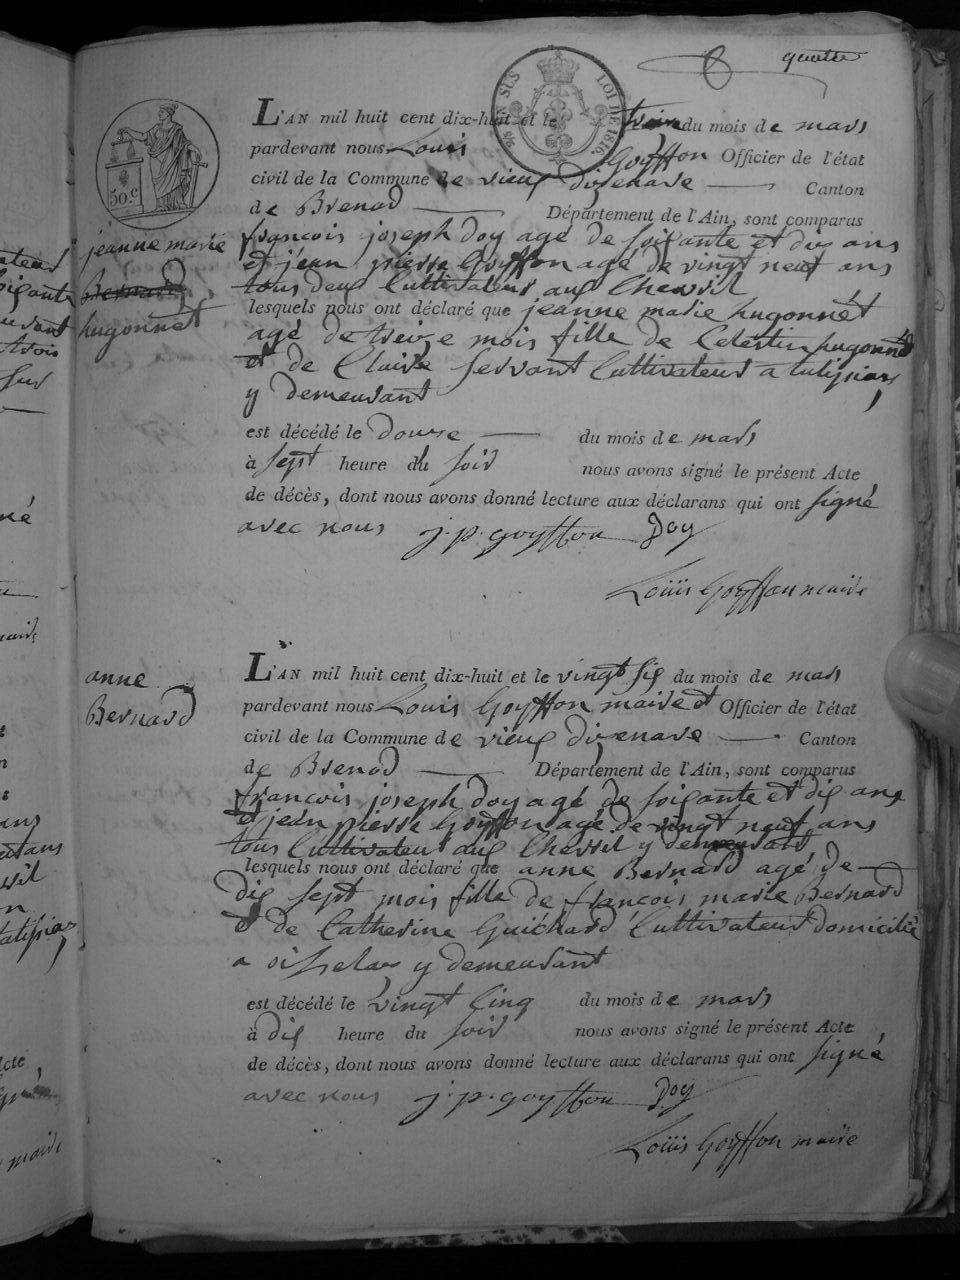 quatre
EN SUS
LOI DE 1816.
50.c
L'AN mil huit cent dix-huit et le treize du mois de mars
pardevant nous Louis Goyffon Officier de l'état
civil de la Commune de vieux dizenave Canton
de Brenod Département de l'Ain, sont comparus
jeanne marie
Bernard
hugonnet
françois joseph doy agé de soixante et dix ans
et jean pierre Goyffon agé de vingt neuf ans
tous deux Cultivateur aux Chevril
lesquels nous ont déclaré que jeanne marie hugonnét
agé de treize mois fille de Celestin hugonnet
et de Claire servant Cultivateur a
y demeurant
est décédé le douze du mois de mars
à sept heure du soir nous avons signé le présent Acte
de décès, dont nous avons donné lecture aux déclarans qui ont signé
avec nous j. p. goyffon Doy
Loüis Goyffon maire
anne
Bernard
L'AN mil huit cent dix-huit et le vingt six du mois de mars
pardevant nous Louis Goyffon maire et Officier de l'état
civil de la Commune de vieux dizenave Canton
de Brenod Département de l'Ain, sont comparus
françois joseph doy agé de soixante et dix ans
et jean pierre Goyffon agé de vingt neuf ans
tous Cultivateur aux Chevril y demeurant
lesquels nous ont déclaré que anne Bernard agé de
dix sept mois fille de françois marie Bernard
et de Catherine Guichard Cultivateur domicilié
a y demeurant
est décédé le vingt Cinq du mois de mars
à dix heure du soir nous avons signé le présent Acte
de décès, dont nous avons donné lecture aux déclarans qui ont signé
avec nous j. p. goyffon Doy
Loüis Goyffon maire